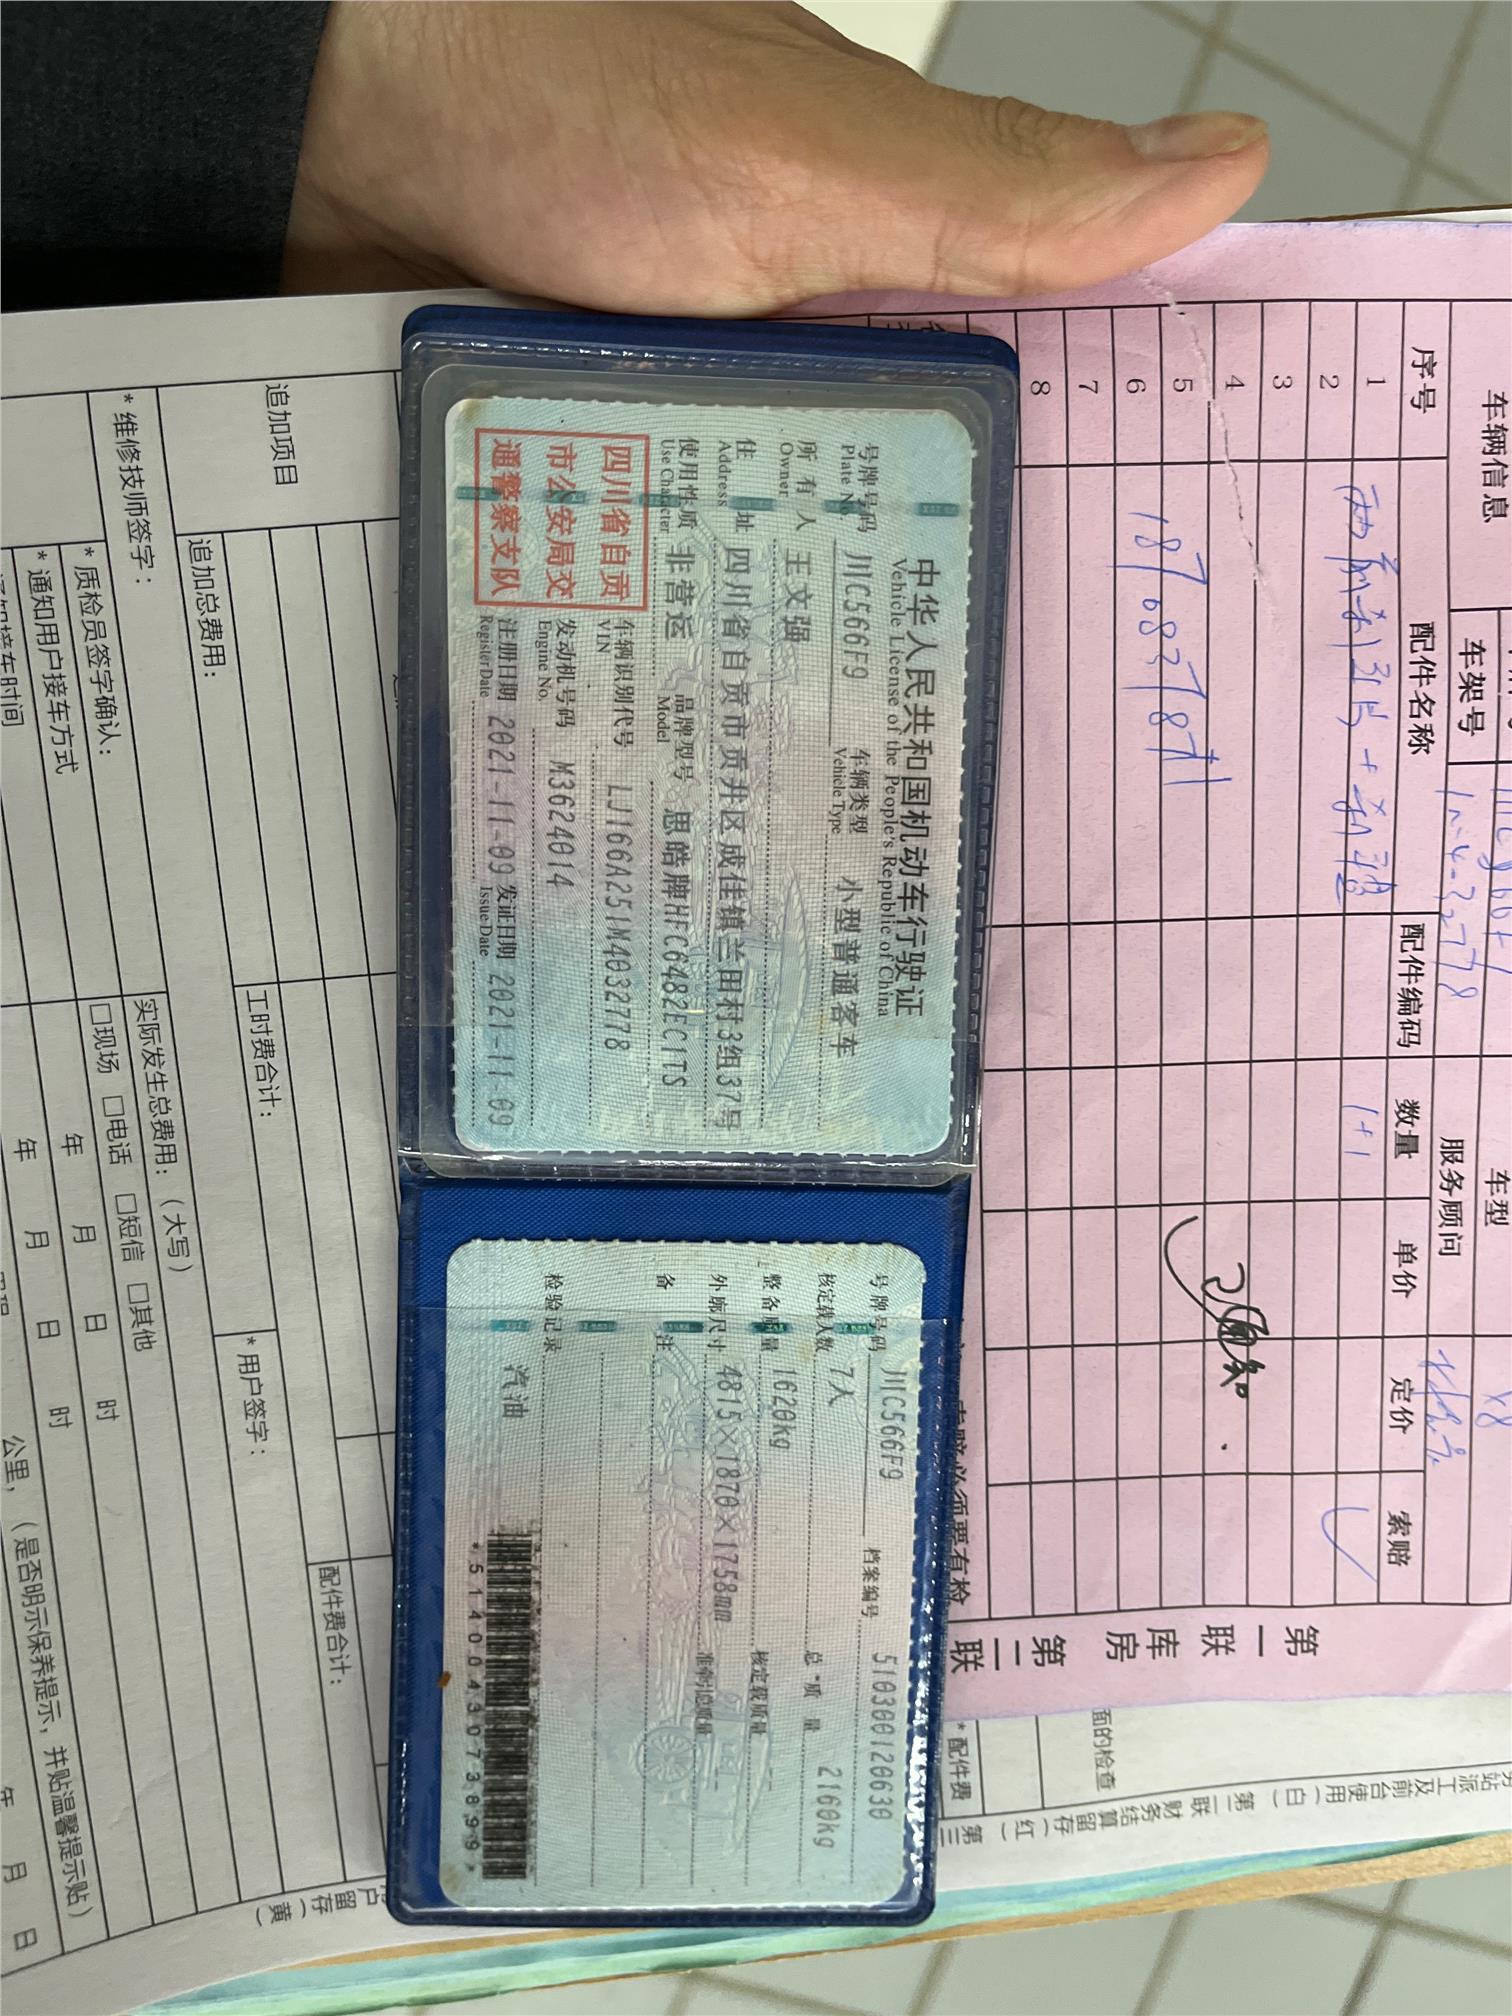 中华人民共和国机动车行驶证
Vehicle License of the People's Republic of China
号牌号码 川C566F9 车辆类型 小型普通客车
Plate No. Vehicle Type
所有人 王文强
Owner
住址 四川省自贡市贡井区成佳镇兰田村3组37号
Address
使用性质 非营运 品牌型号 思皓牌HFC6482EC1TS
Use Character Model
四川省自贡
市公安局交
通警察支队
车辆识别代号 LJ166A251M4032778
VIN
发动机号码 M3624014
Engine No.
注册日期 2021-11-09 发证日期 2021-11-09
Register Date Issue Date
号牌号码 川C566F9 档案编号 510300120630
核定载人数 7人 总质量 2160kg
整备质量 1620kg 核定载质量
外廓尺寸 4815×1870×1758mm 准牵引总质量
备注
检验记录 汽油
*5140043073899*
车辆信息
车架号
车型 X8
服务顾问
序号 配件名称 配件编码 数量 单价 定价 索赔
1 1+1
2
3
4
5
6
7
8
18768378711
第一联 库房 第二联
索赔必须要有检
面的检查
*配件费
追加项目
追加总费用：
工时费合计：
配件费合计：
*维修技师签字：
实际发生总费用：（大写）
*用户签字：
*质检员签字确认：
年 月 日 时
*通知用户接车方式
□现场 □电话 □短信 □其他
年 月 日 时
公里，（是否明示保养提示，并贴温馨提示贴）
年 月 日